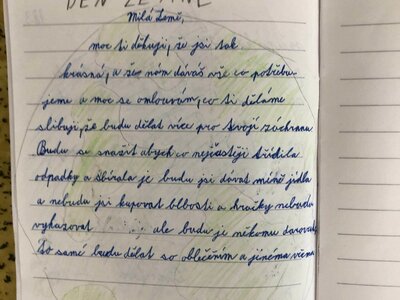 DEN ZEMĚ
Milá Země,
moc ti děkuji, že jsi tak
krásná, a že nám dáváš vše co potřebu-
jeme a moc se omlouvám, co ti děláme
slibuji, že budu dělat více pro tvojí záchranu
Budu se snažit abych co nejčastěji třídila
odpadky a sbírala je budu jsi dávat méně jídla
a nebudu jsi kupovat blbosti a hračky nebudu
vyhazovat ale budu je někomu darovat
To samé budu dělat so oblečením a jinéma věcma